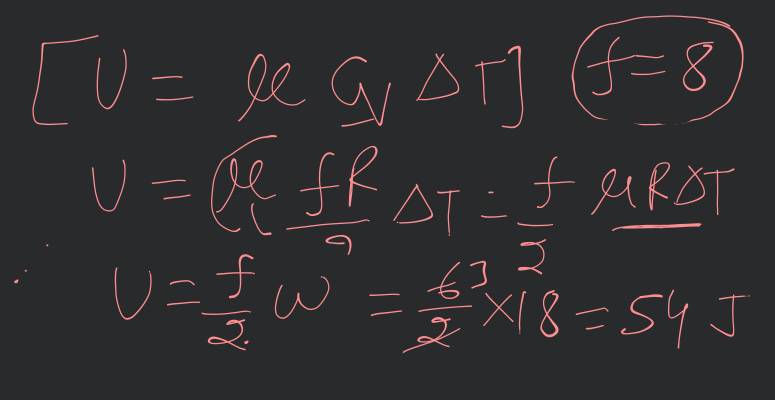 [U = μ Cv ΔT] f = 8
U = μ fR/2 ΔT = f/2 μRΔT
∴ U = f/2 W = 6/2 3 × 18 = 54 J